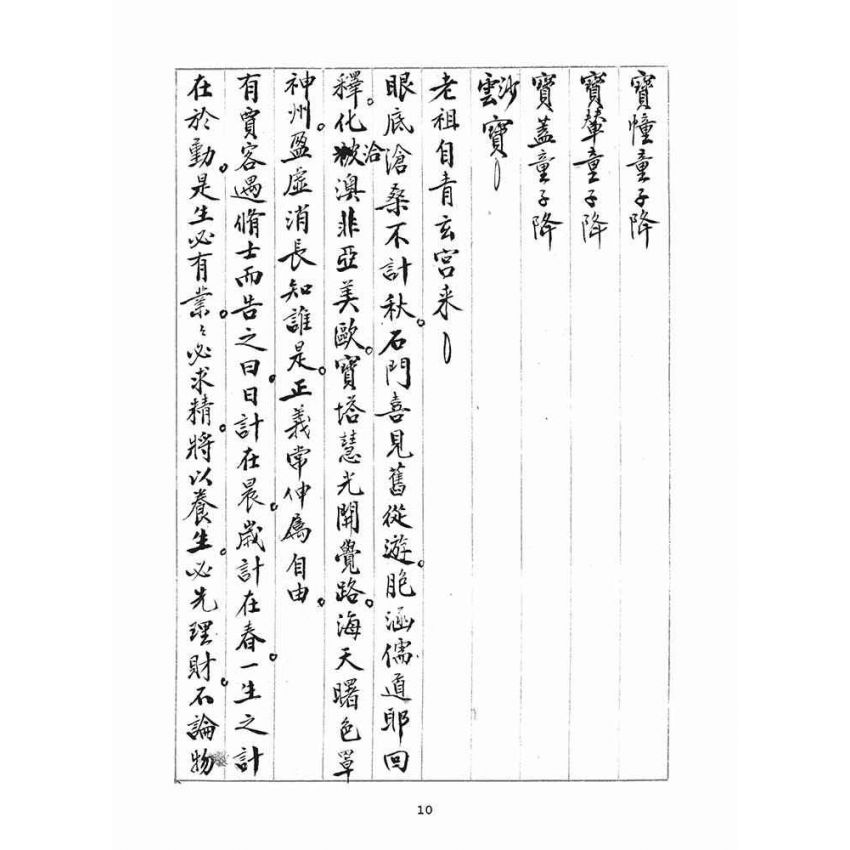 寶幢童子降
寶輦童子降
寶蓋童子降
沙雲寶
老祖自青玄宮来
眼底滄桑不計秋。石門喜見舊從游。胞涵儒道耶回
釋。化洽澳非亞美歐。寶塔慧光開覺路。海天曙色罩
神州。盈虛消長知誰是。正義常伸為自由。
有賈客遇脩士而告之曰。日計在晨。歲計在春。一生之計
在於勤。是生必有業。々必求精。將以養生。必先理財。不論物
10